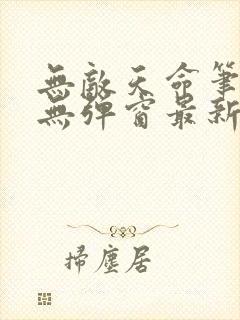 無敵天命筆
無彈窗最新
掃塵居